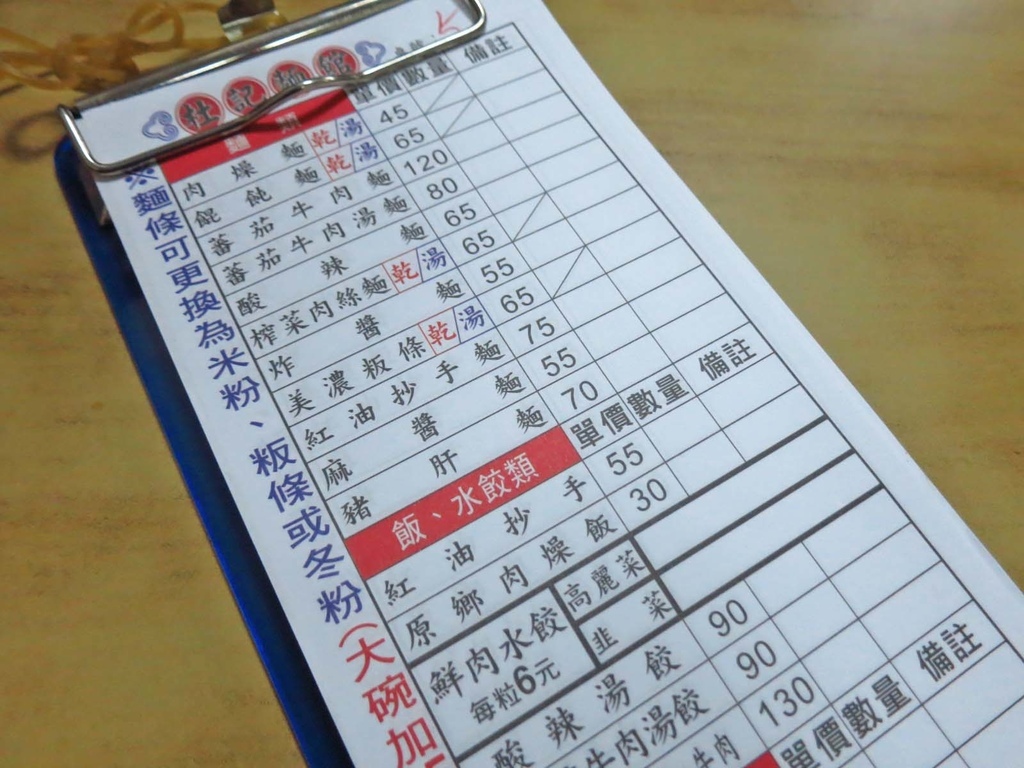 杜記麵館
麵類 單價 數量 備註
肉燥麵 乾/湯 45
餛飩麵 乾/湯 65
蕃茄牛肉麵 120
蕃茄牛肉湯麵 80
酸辣麵 65
榨菜肉絲麵 乾/湯 65
炸醬麵 55
美濃粄條 乾/湯 65
紅油抄手麵 75
麻醬麵 55
豬肝麵 70
飯、水餃類 單價 數量 備註
紅油抄手 55
原鄉肉燥飯 30
鮮肉水餃 每粒6元 高麗菜
韭菜
酸辣湯餃 90
牛肉湯餃 90
牛肉 130
單價 數量 備註
※麵條可更換為米粉、粄條或冬粉(大碗加